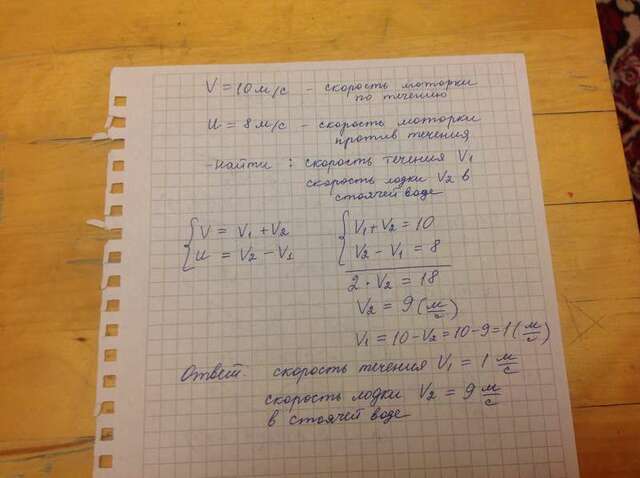 V = 10 м/с - скорость моторки
по течению
U = 8 м/с - скорость моторки
против течения
Найти : скорость течения V₁
скорость лодки V₂ в
стоячей воде
{ V = V₁ + V₂
U = V₂ - V₁
{ V₁ + V₂ = 10
V₂ - V₁ = 8
2 · V₂ = 18
V₂ = 9 (м/с)
V₁ = 10 - V₂ = 10 - 9 = 1 (м/с)
Ответ: скорость течения V₁ = 1 м/с
скорость лодки V₂ = 9 м/с
в стоячей воде